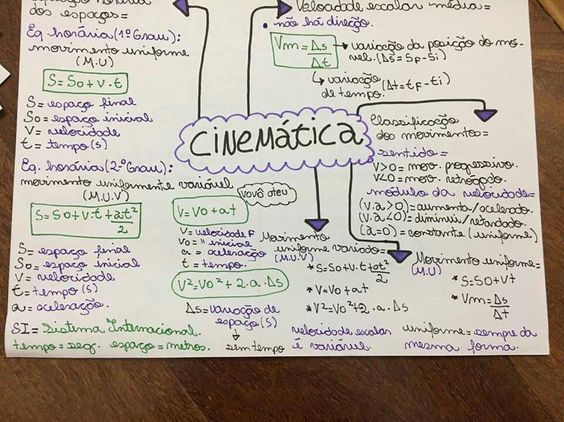 dos espaços=
Eq horária (1º Grau):
movimento uniforme
(M.U)
S = So + v.t
S = espaço final
So = espaço inicial
V = velocidade
t = tempo (s)
Eq. horária (2º Grau):
movimento uniformemente variável
(M.U.V)
S = So + v.t + at²/2
S = espaço final
So = espaço inicial
V = velocidade
t = tempo (s)
a = aceleração.
SI = Sistema Internacional.
tempo = seg. espaço = metros.
Velocidade escalar média=
não há direção.
Vm = Δs/Δt
variação da posição do mó-
vel. (Δs = Sf - Si)
variação (Δt = tf - ti)
de tempo.
CINEMÁTICA
vovô ateu
V = Vo + at
V = velocidade F
Vo = " inicial
a = aceleração
t = tempo.
V² = Vo² + 2.a.Δs
Δs = variação de
espaço (s)
sem tempo
Classificação
do movimento=
sentido=
V>0 = mov. progressivo.
V<0 = mov. retrógado.
módulo da velocidade=
(v.a>0) = aumenta/acelerado.
(v.a<0) = diminui/retardado
(a=0) = constante (uniforme)
Movimento
uniforme variado=
(M.U.V)
* S = So + V.t + at²/2
* V = Vo + at
* V² = Vo² + 2.a.Δs
velocidade escalar
é variável.
Movimento uniforme=
(M.U)
* S = So + vt
* Vm = Δs/Δt
uniforme = sempre da
mesma forma.